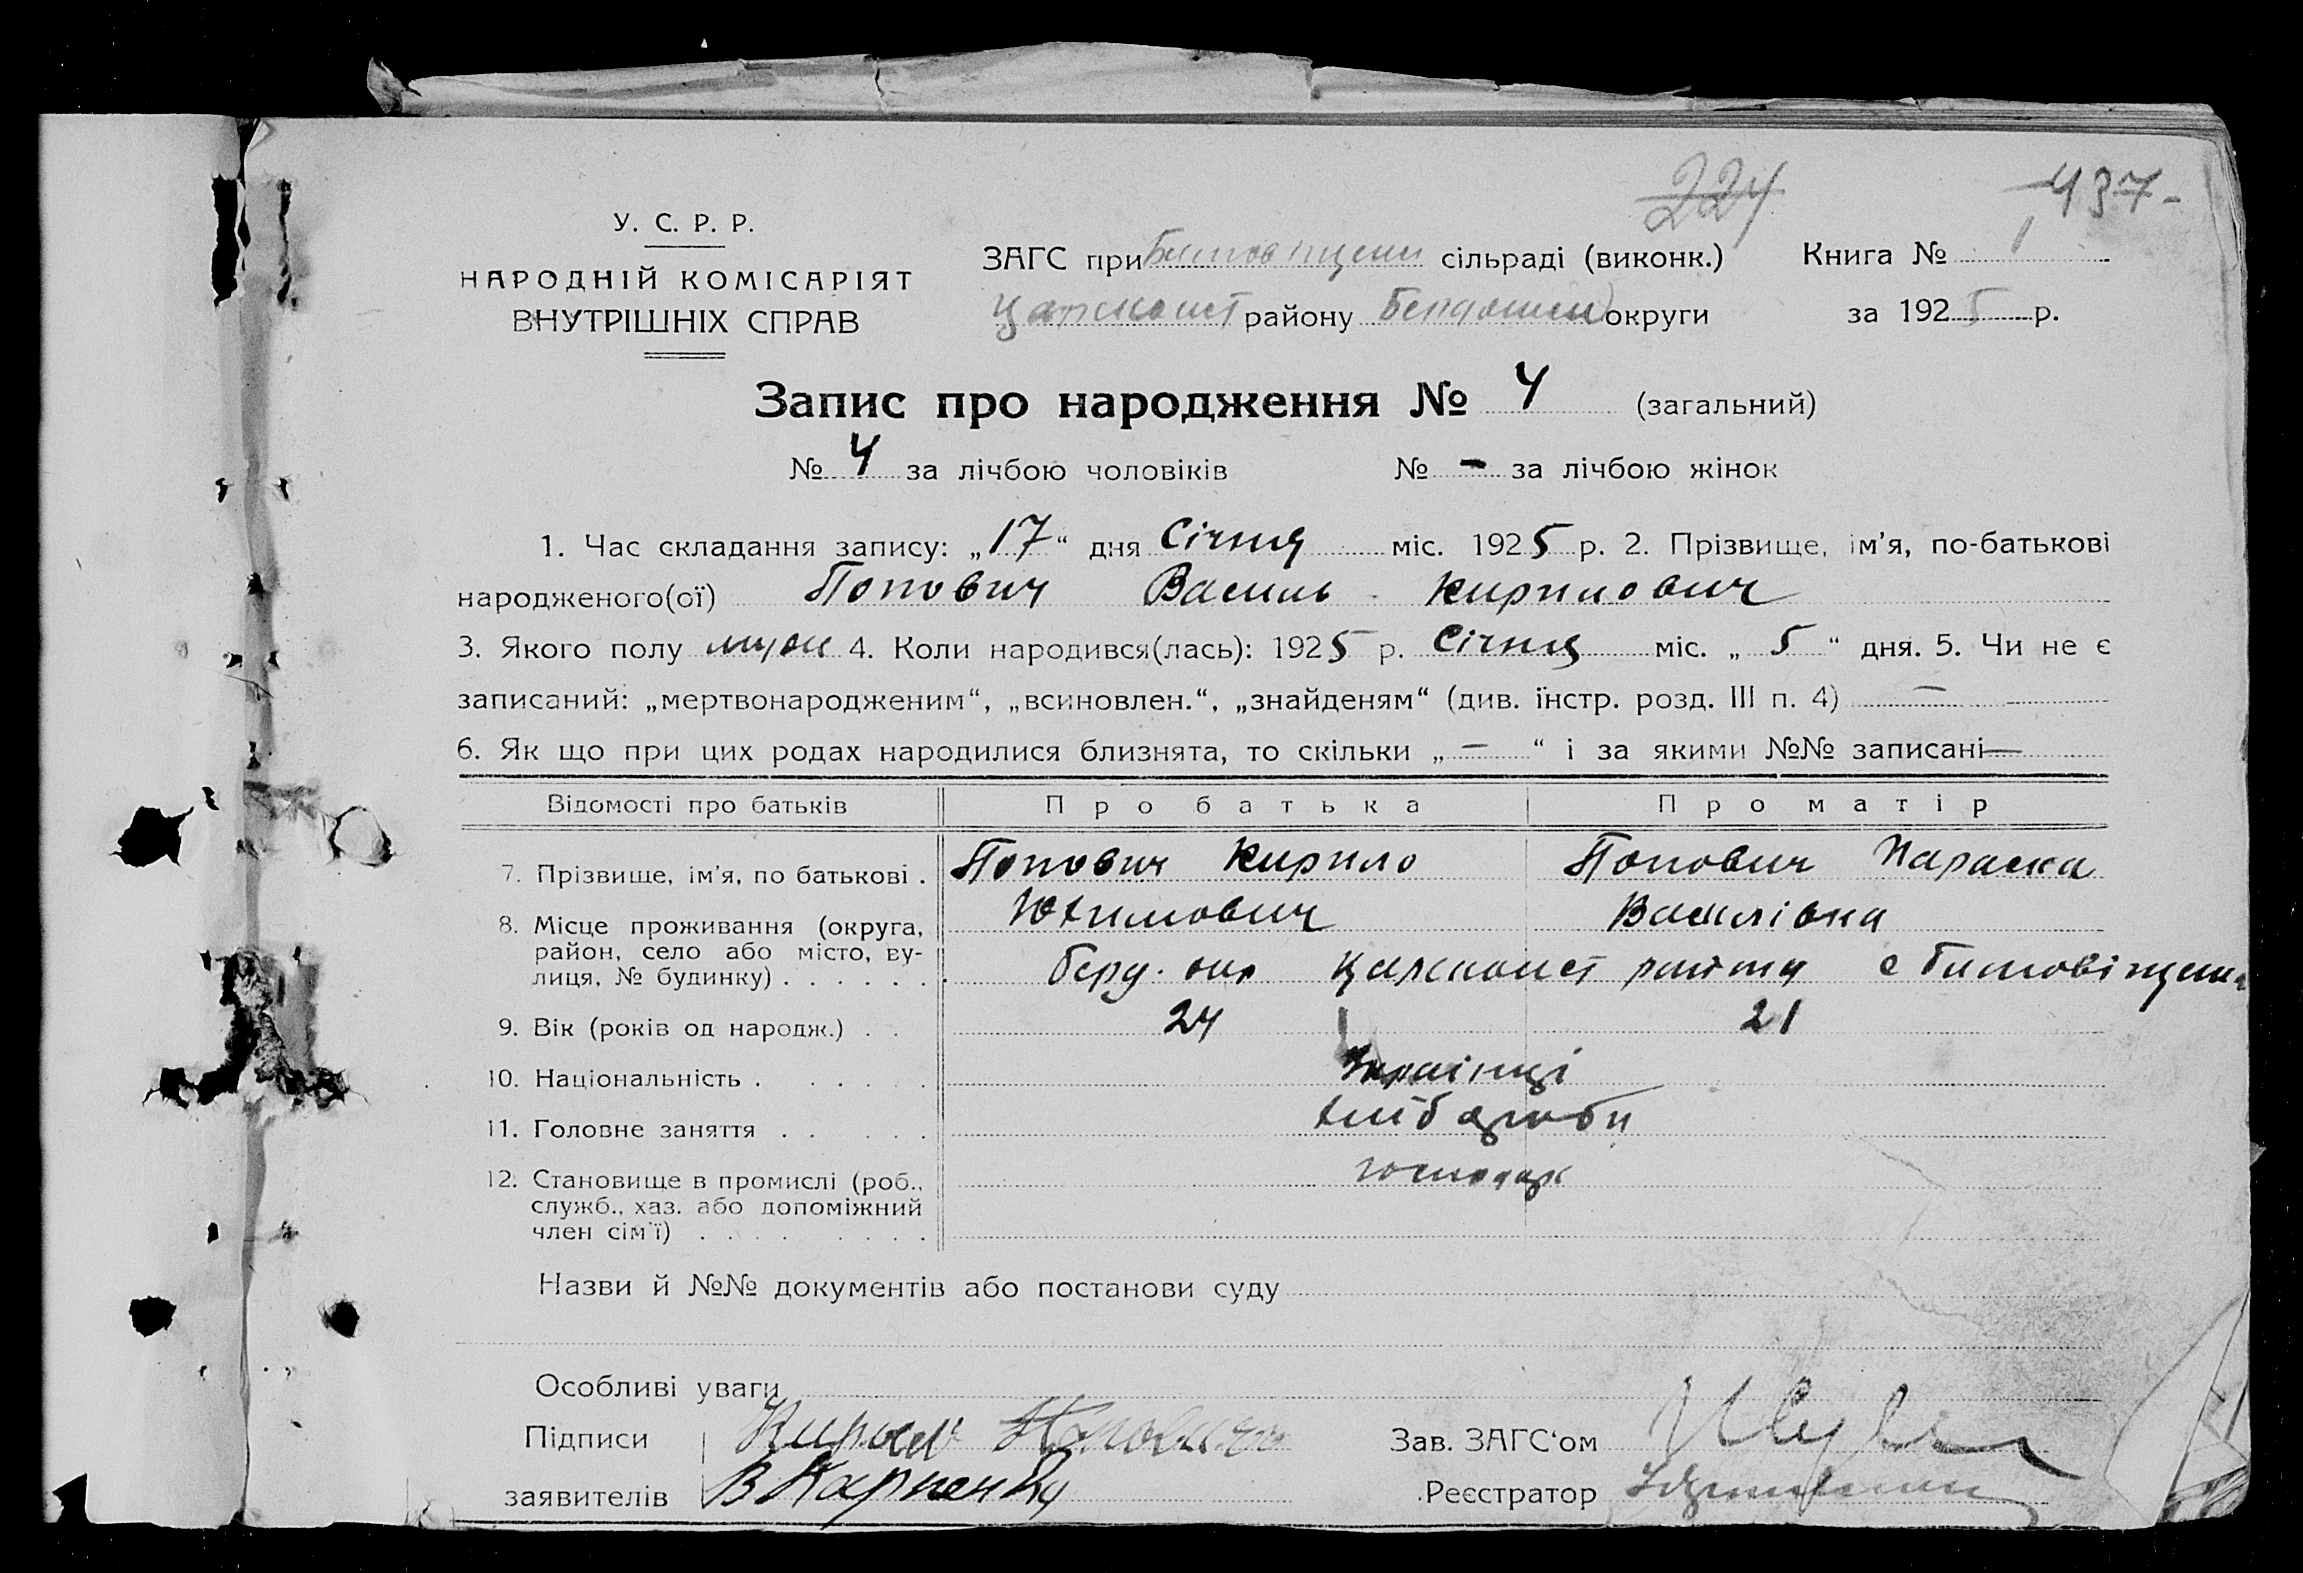 224 437-
У. С. Р. Р.
НАРОДНІЙ КОМІСАРІЯТ
ВНУТРІШНІХ СПРАВ
ЗАГС при сільраді (виконк.) Книга № 1
району округи за 1925 р.
Запис про народження № 4 (загальний)
№ 4 за лічбою чоловіків № - за лічбою жінок
1. Час складання запису: „17“ дня Січня міс. 1925 р. 2. Прізвище, ім’я, по-батькові
народженого(ої) Попович Василь Кирилович
3. Якого полу муж 4. Коли народився(лась): 1925 р. Січня міс. „5“ дня. 5. Чи не є
записаний: „мертвонародженим“, „всиновлен.“, „знайденям“ (див. їнстр. розд. III п. 4) —
6. Як що при цих родах народилися близнята, то скільки „—“ і за якими №№ записані —
Відомості про батьків Про батька Про матір
7. Прізвище, ім’я, по батькові . Попович Кирило Попович Параска
Юхимович Василівна
8. Місце проживання (округа,
район, село або місто, ву-
лиця, № будинку) . . . . . . . Берд. окр району с
9. Вік (років од народж.) . . 24 21
10. Національність . . . . . Українці
11. Головне заняття . . . . . хлібороби
12. Становище в промислі (роб., господар
служб., хаз. або допоміжний
член сім’ї) . . . . . . . .
Назви й №№ документів або постанови суду
Особливі уваги
Підписи Кирило Попович Зав. ЗАГС‘ом
заявителів В Карпенко Реєстратор